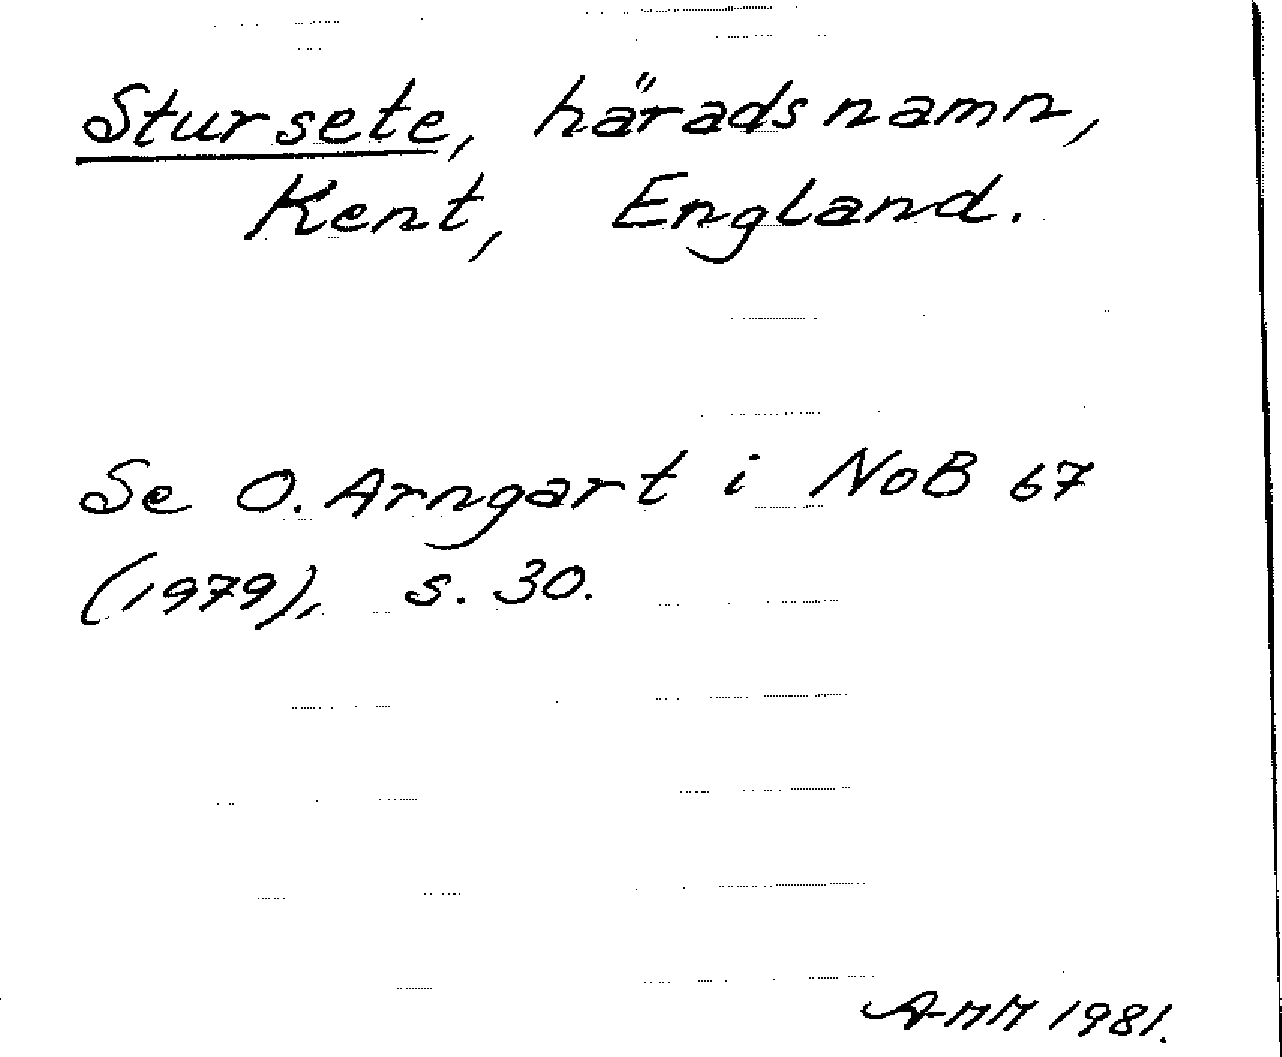 Stursete, häradsnamn,
Kent, England.
Se O. Arngart i NoB 67
(1979), s. 30.
AMM 1981.